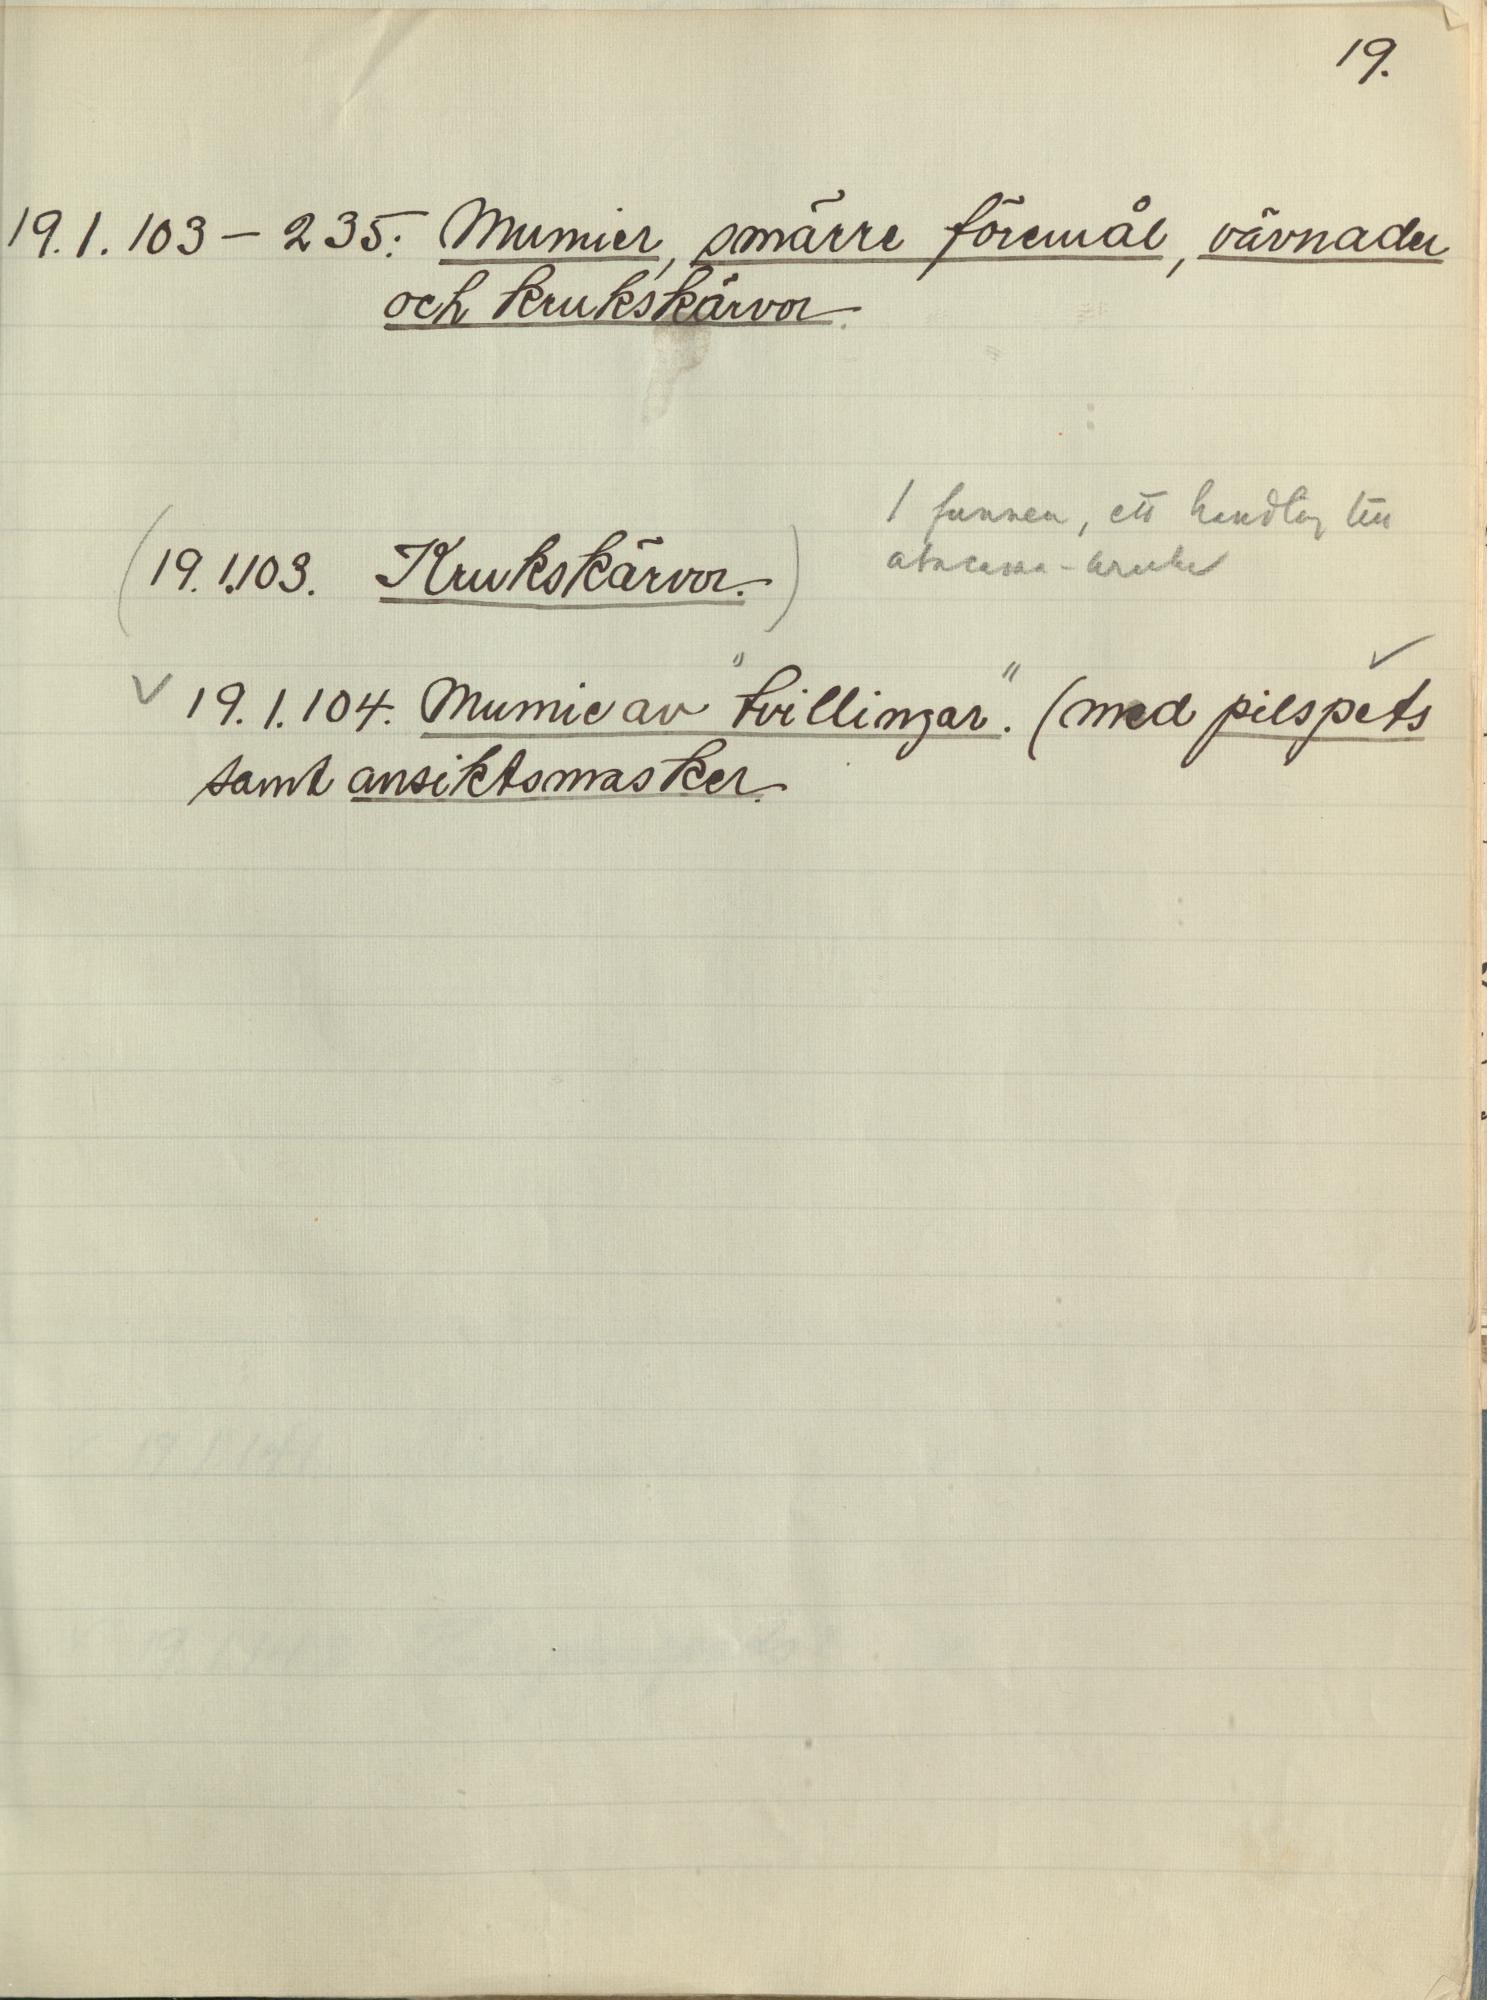 19.
19.1.103 – 235: Mumier, smärre föremål, vävnader
och krukskärvor.
1 funnen, ett handtag till
atacama-kruka
(19.1.103. Krukskärvor.)
✓ 19.1.104. Mumie av "tvillingar". (med pilspets ✓
samt ansiktsmasker.